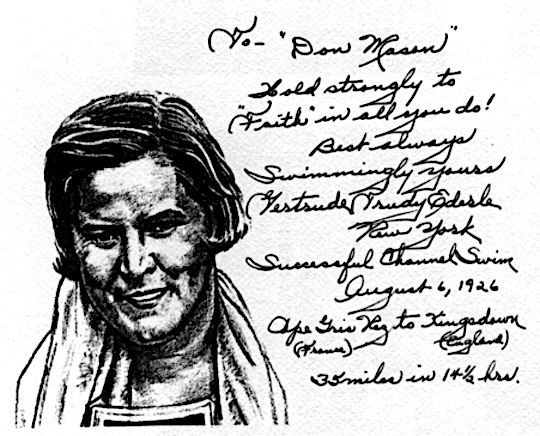 To - "Don Mason"
Hold strongly to
"Faith" in all you do!
Best always
Swimmingly yours
Gertrude Trudy Ederle
New York
Successful Channel Swim
August 6, 1926
Cape Gris Nez to Kingsdown
(France) (England)
35 miles in 14½ hrs.